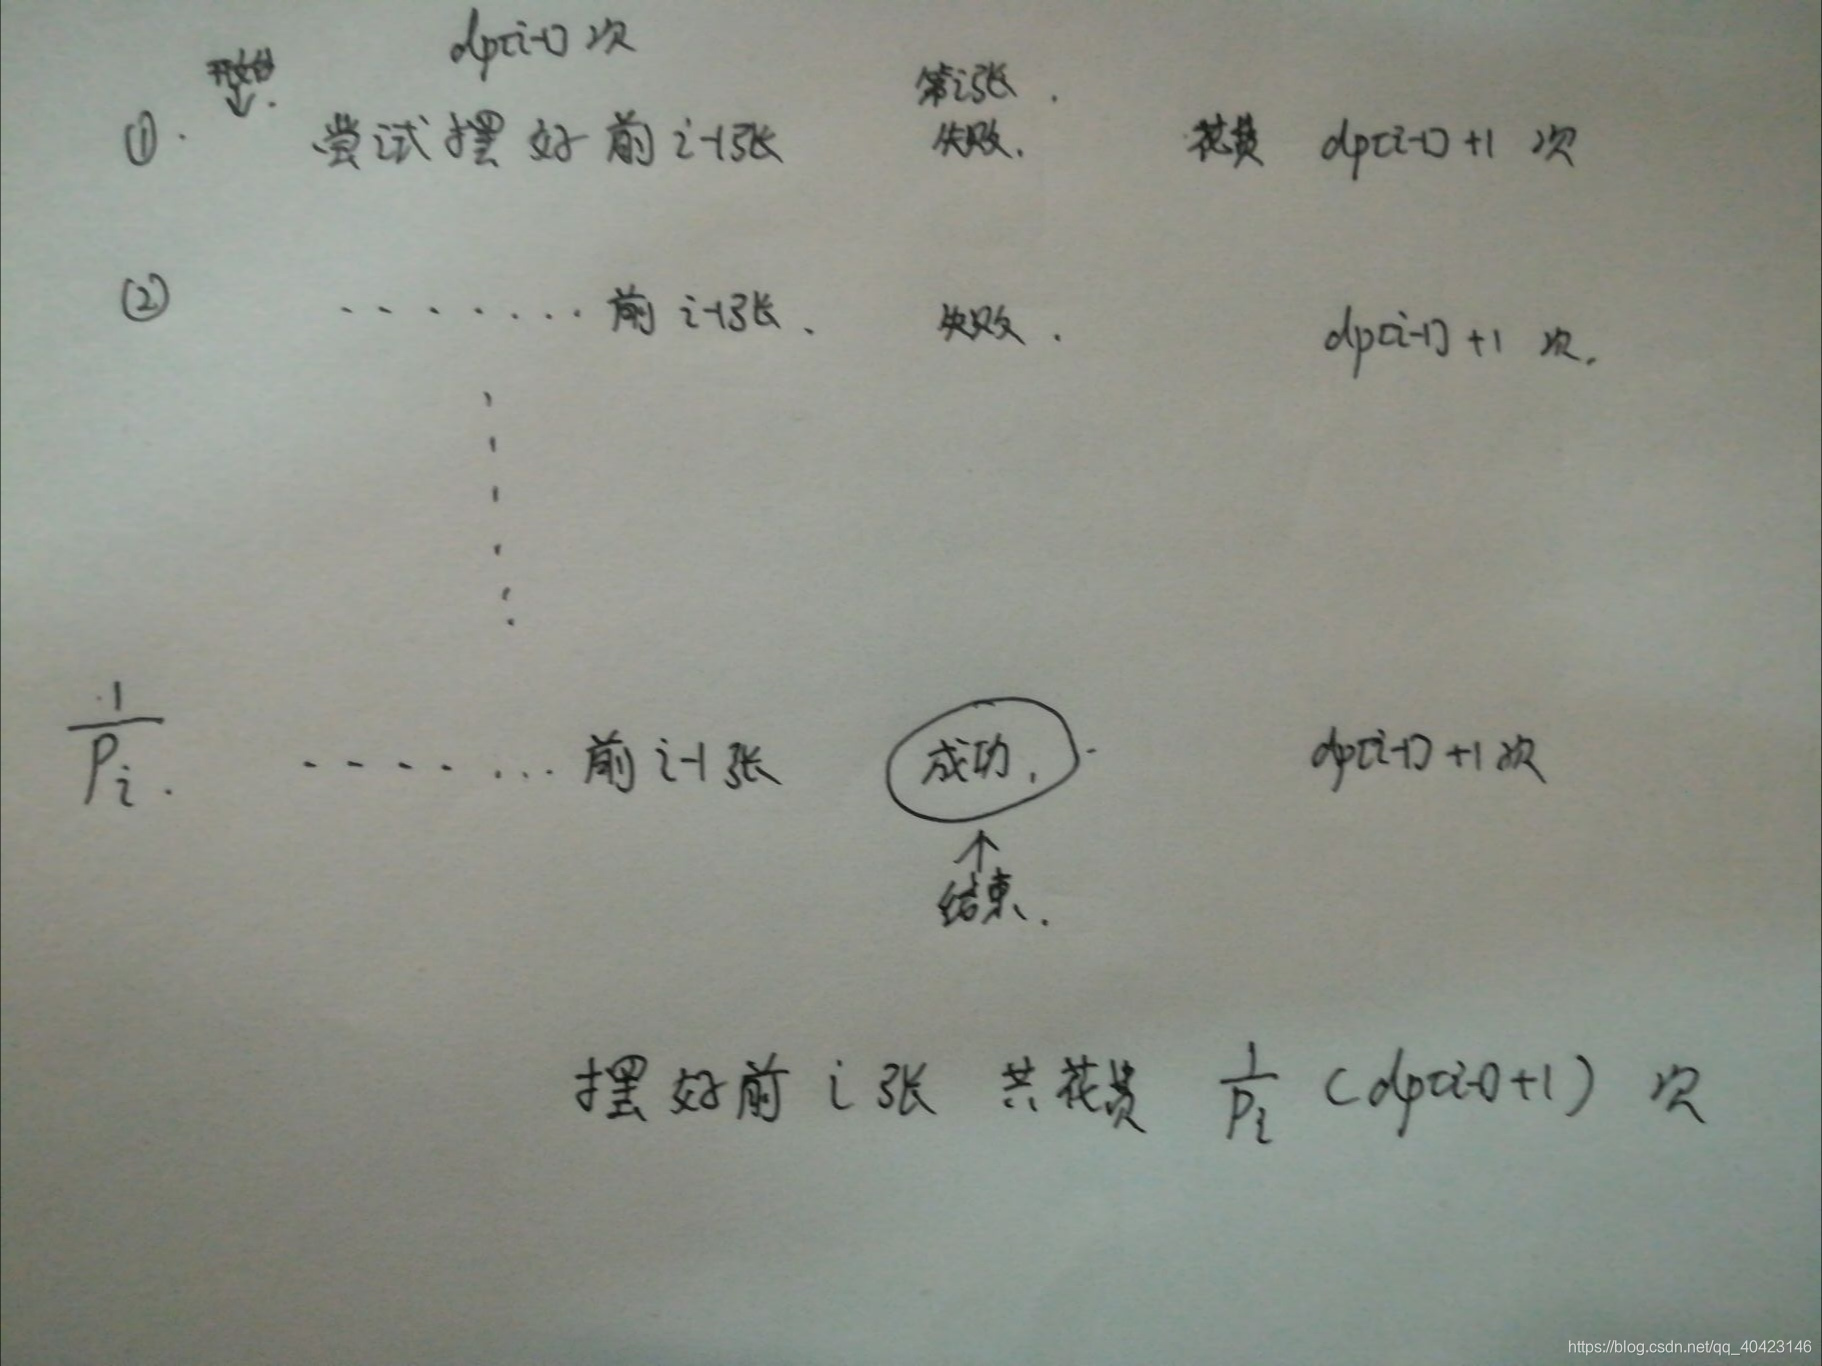 dp[i-1]次
开始
第i张.
①. 尝试摆好前i-1张 失败. 花费 dp[i-1]+1 次
② ········前i-1张. 失败. dp[i-1]+1 次.
1/Pi. ········前i-1张 成功. dp[i-1]+1次
↑
结束.
摆好前i张 共花费 1/Pi (dp[i-1]+1) 次
https://blog.csdn.net/qq_40423146